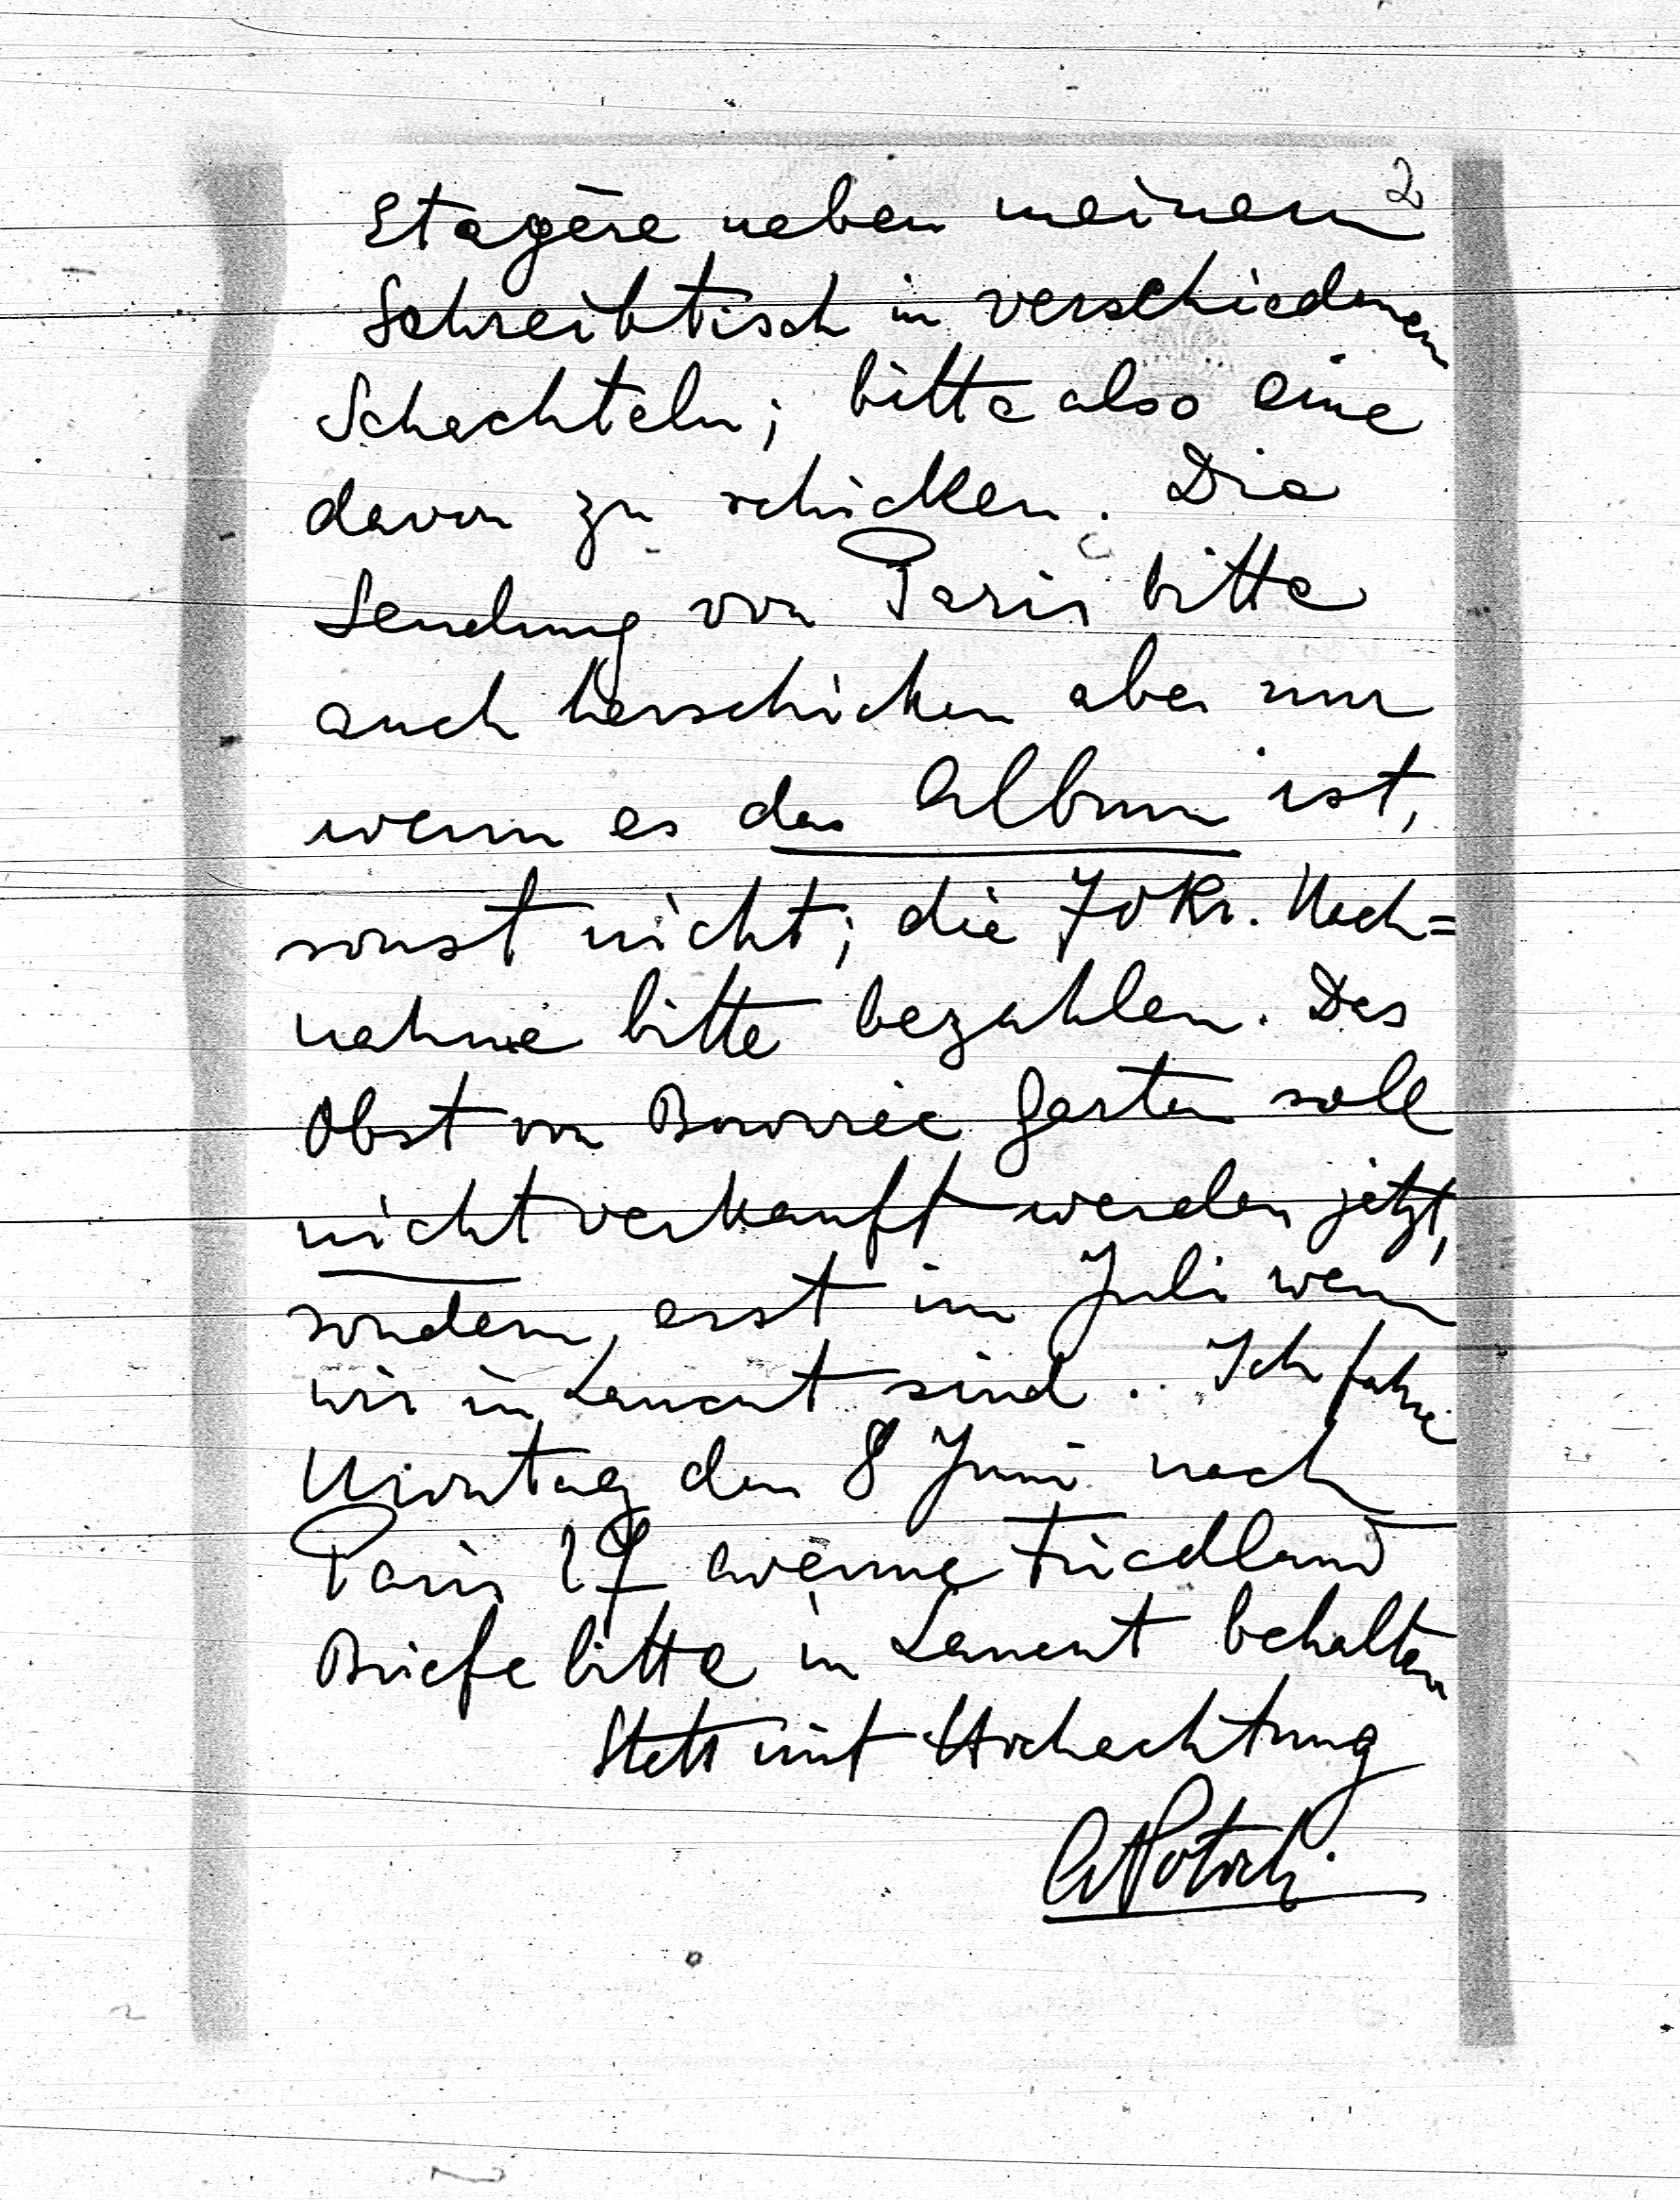 2
Etagère neben meinem
Schreibtisch in verschiedenen
Schachteln; bitte also eine
davon zu schicken. Die
Sendung von Paris bitte
auch herschicken aber nur
wenn es das Album ist,
sonst nicht; die 70 Kr. Nach=
nahme bitte bezahlen. Das
Obst von Garten soll
nicht verkauft werden jetzt,
sondern, erst im Juli wenn
wir in Lancut sind. Ich fahre
Montag den 8 Juni nach
Paris 27 avenue Friedland
Briefe bitte in Lancut behalten
Stets mit Hochachtung
Potocki